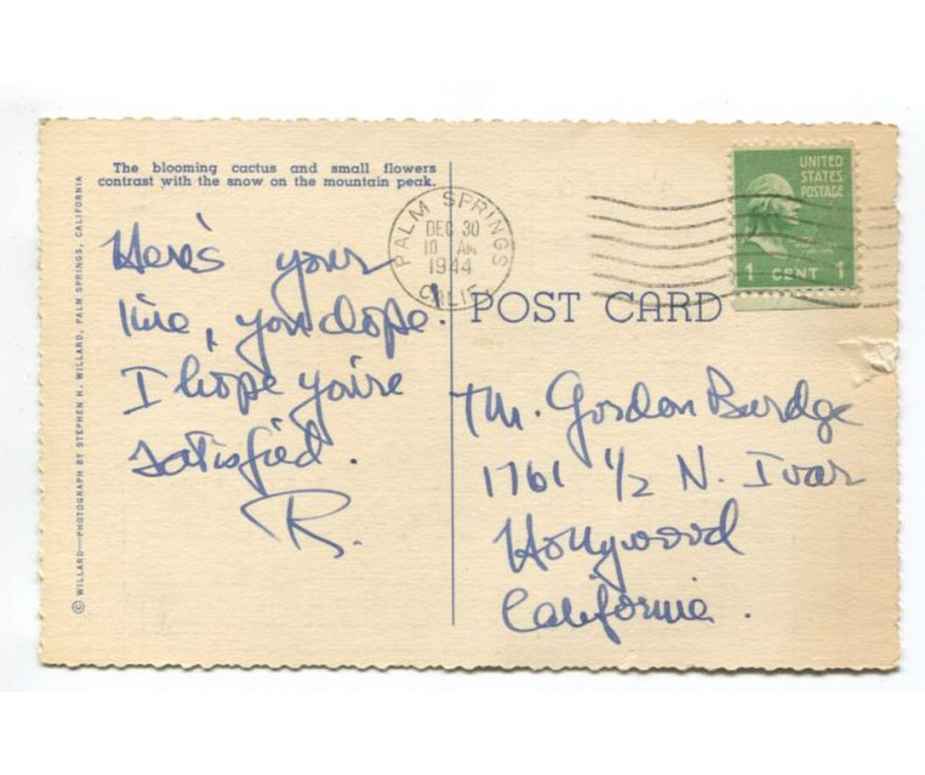 The blooming cactus and small flowers
contrast with the snow on the mountain peak.
© WILLARD—PHOTOGRAPH BY STEPHEN H. WILLARD, PALM SPRINGS, CALIFORNIA
Here's your
line, you dope!
I hope you're
satisfied.
R.
PALM SPRINGS
DEC 30
10 AM
1944
CALIF.
UNITED
STATES
POSTAGE
1 CENT 1
POST CARD
Mr. Gordon Burdge
1761 1/2 N. Ivar
Hollywood
California.